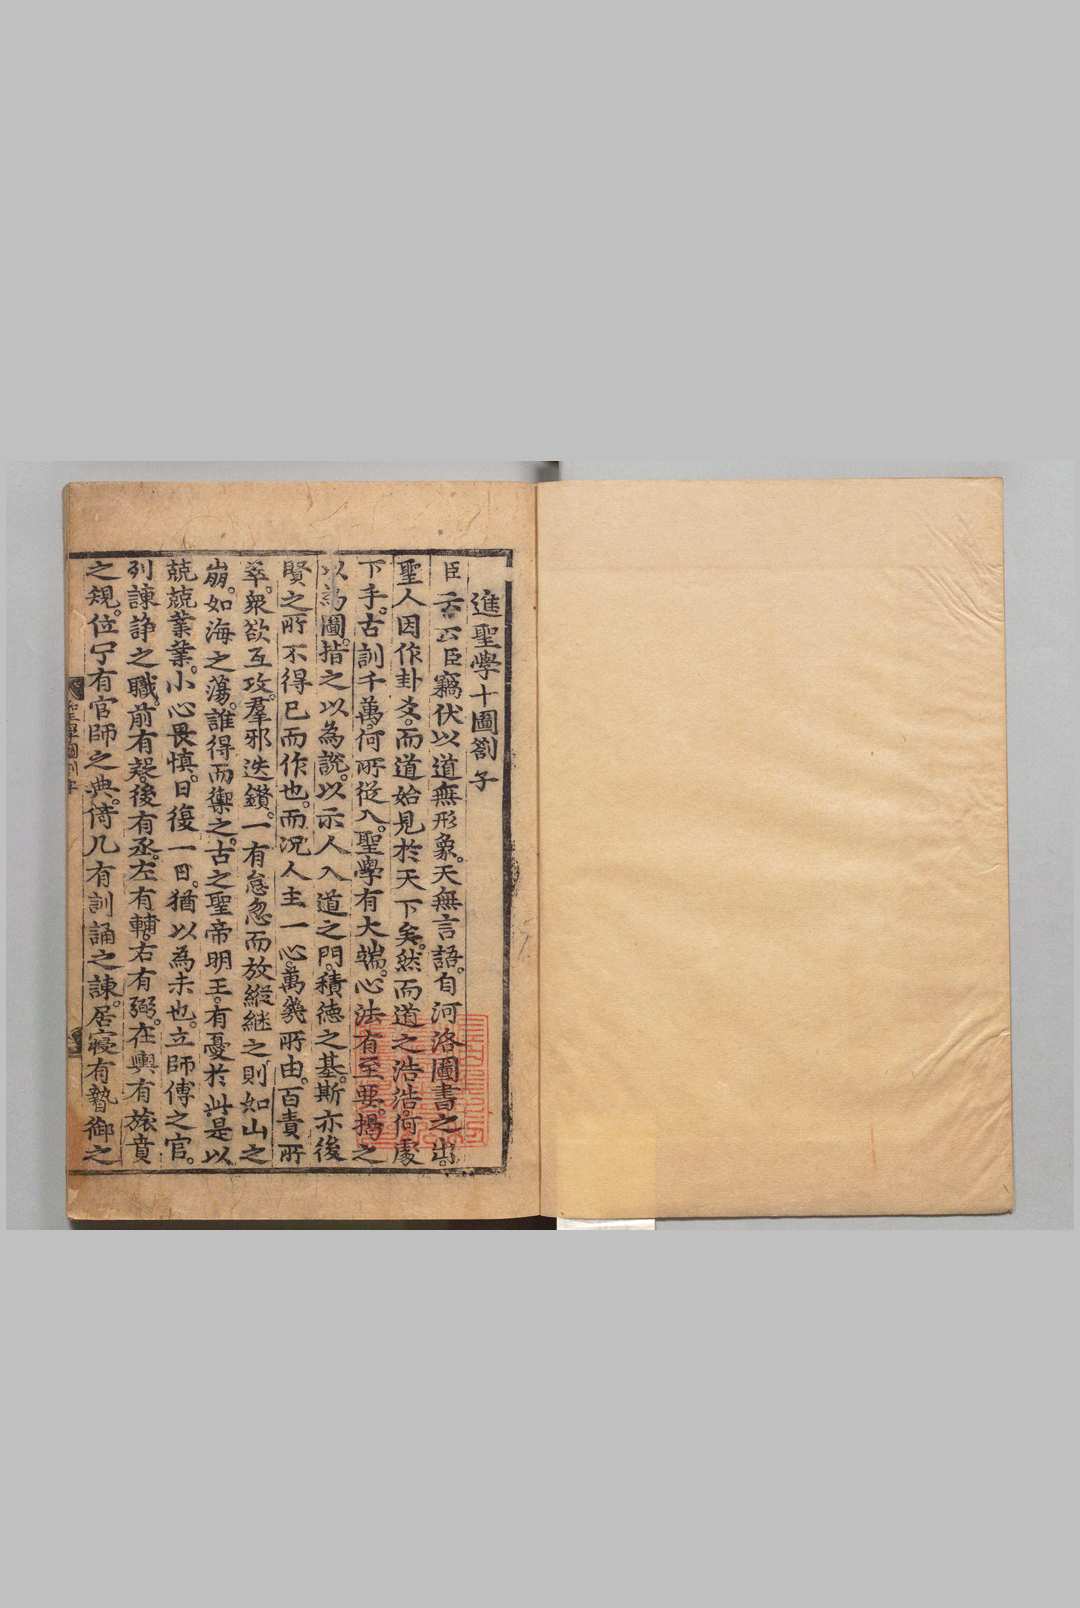 進聖學十圖劄子
臣云云臣竊伏以道無形象。天無言語。自河洛圖書之出。
聖人因作卦爻。而道始見於天下矣。然而道之浩浩。何處
下手。古訓千萬。何所從入。聖學有大端。心法有至要。揭之
以為圖。指之以為說。以示人入道之門。積德之基。斯亦後
賢之所不得已而作也。而況人主一心。萬幾所由。百責所
萃。衆欲互攻。羣邪迭鑽。一有怠忽而放縱繼之則如山之
崩。如海之蕩。誰得而禦之。古之聖帝明王。有憂於此。是以
兢兢業業。小心畏慎。日復一日。猶以為未也。立師傅之官。
列諫諍之職。前有疑。後有丞。左有輔。右有弼。在輿有旅賁
之規。位宁有官師之典。倚几有訓誦之諫。居寢有暬御之